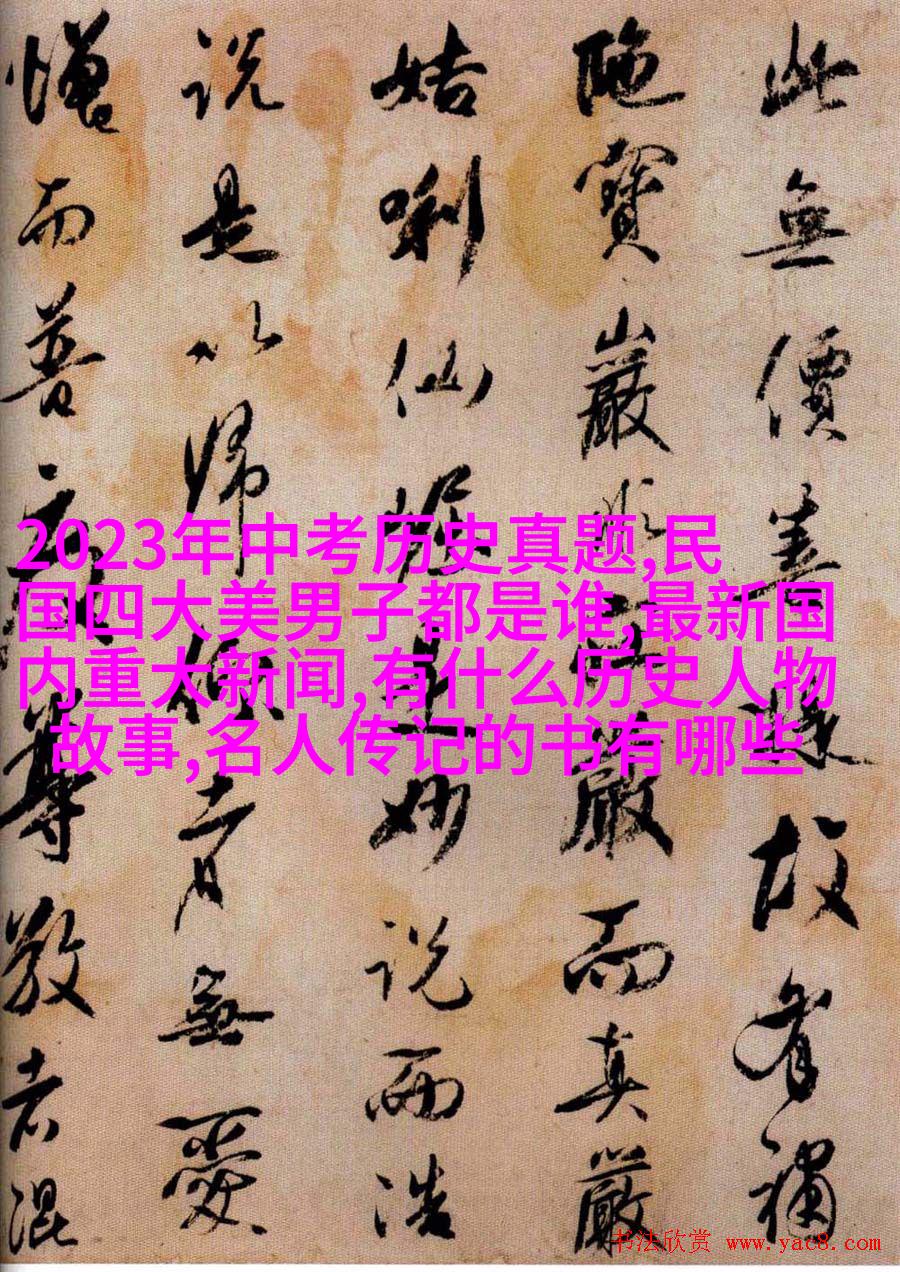 此無價善故有補
陁寶嚴嚴而真嚴
姑唎仙妙说而浩
说是以歸依者無愛
憎而普敬者混
2023年中考历史真题,民
国四大美男子都是谁,最新国
内重大新闻,有什么历史人物
故事,名人传记的书有哪些
书法欣赏 www.yac8.com